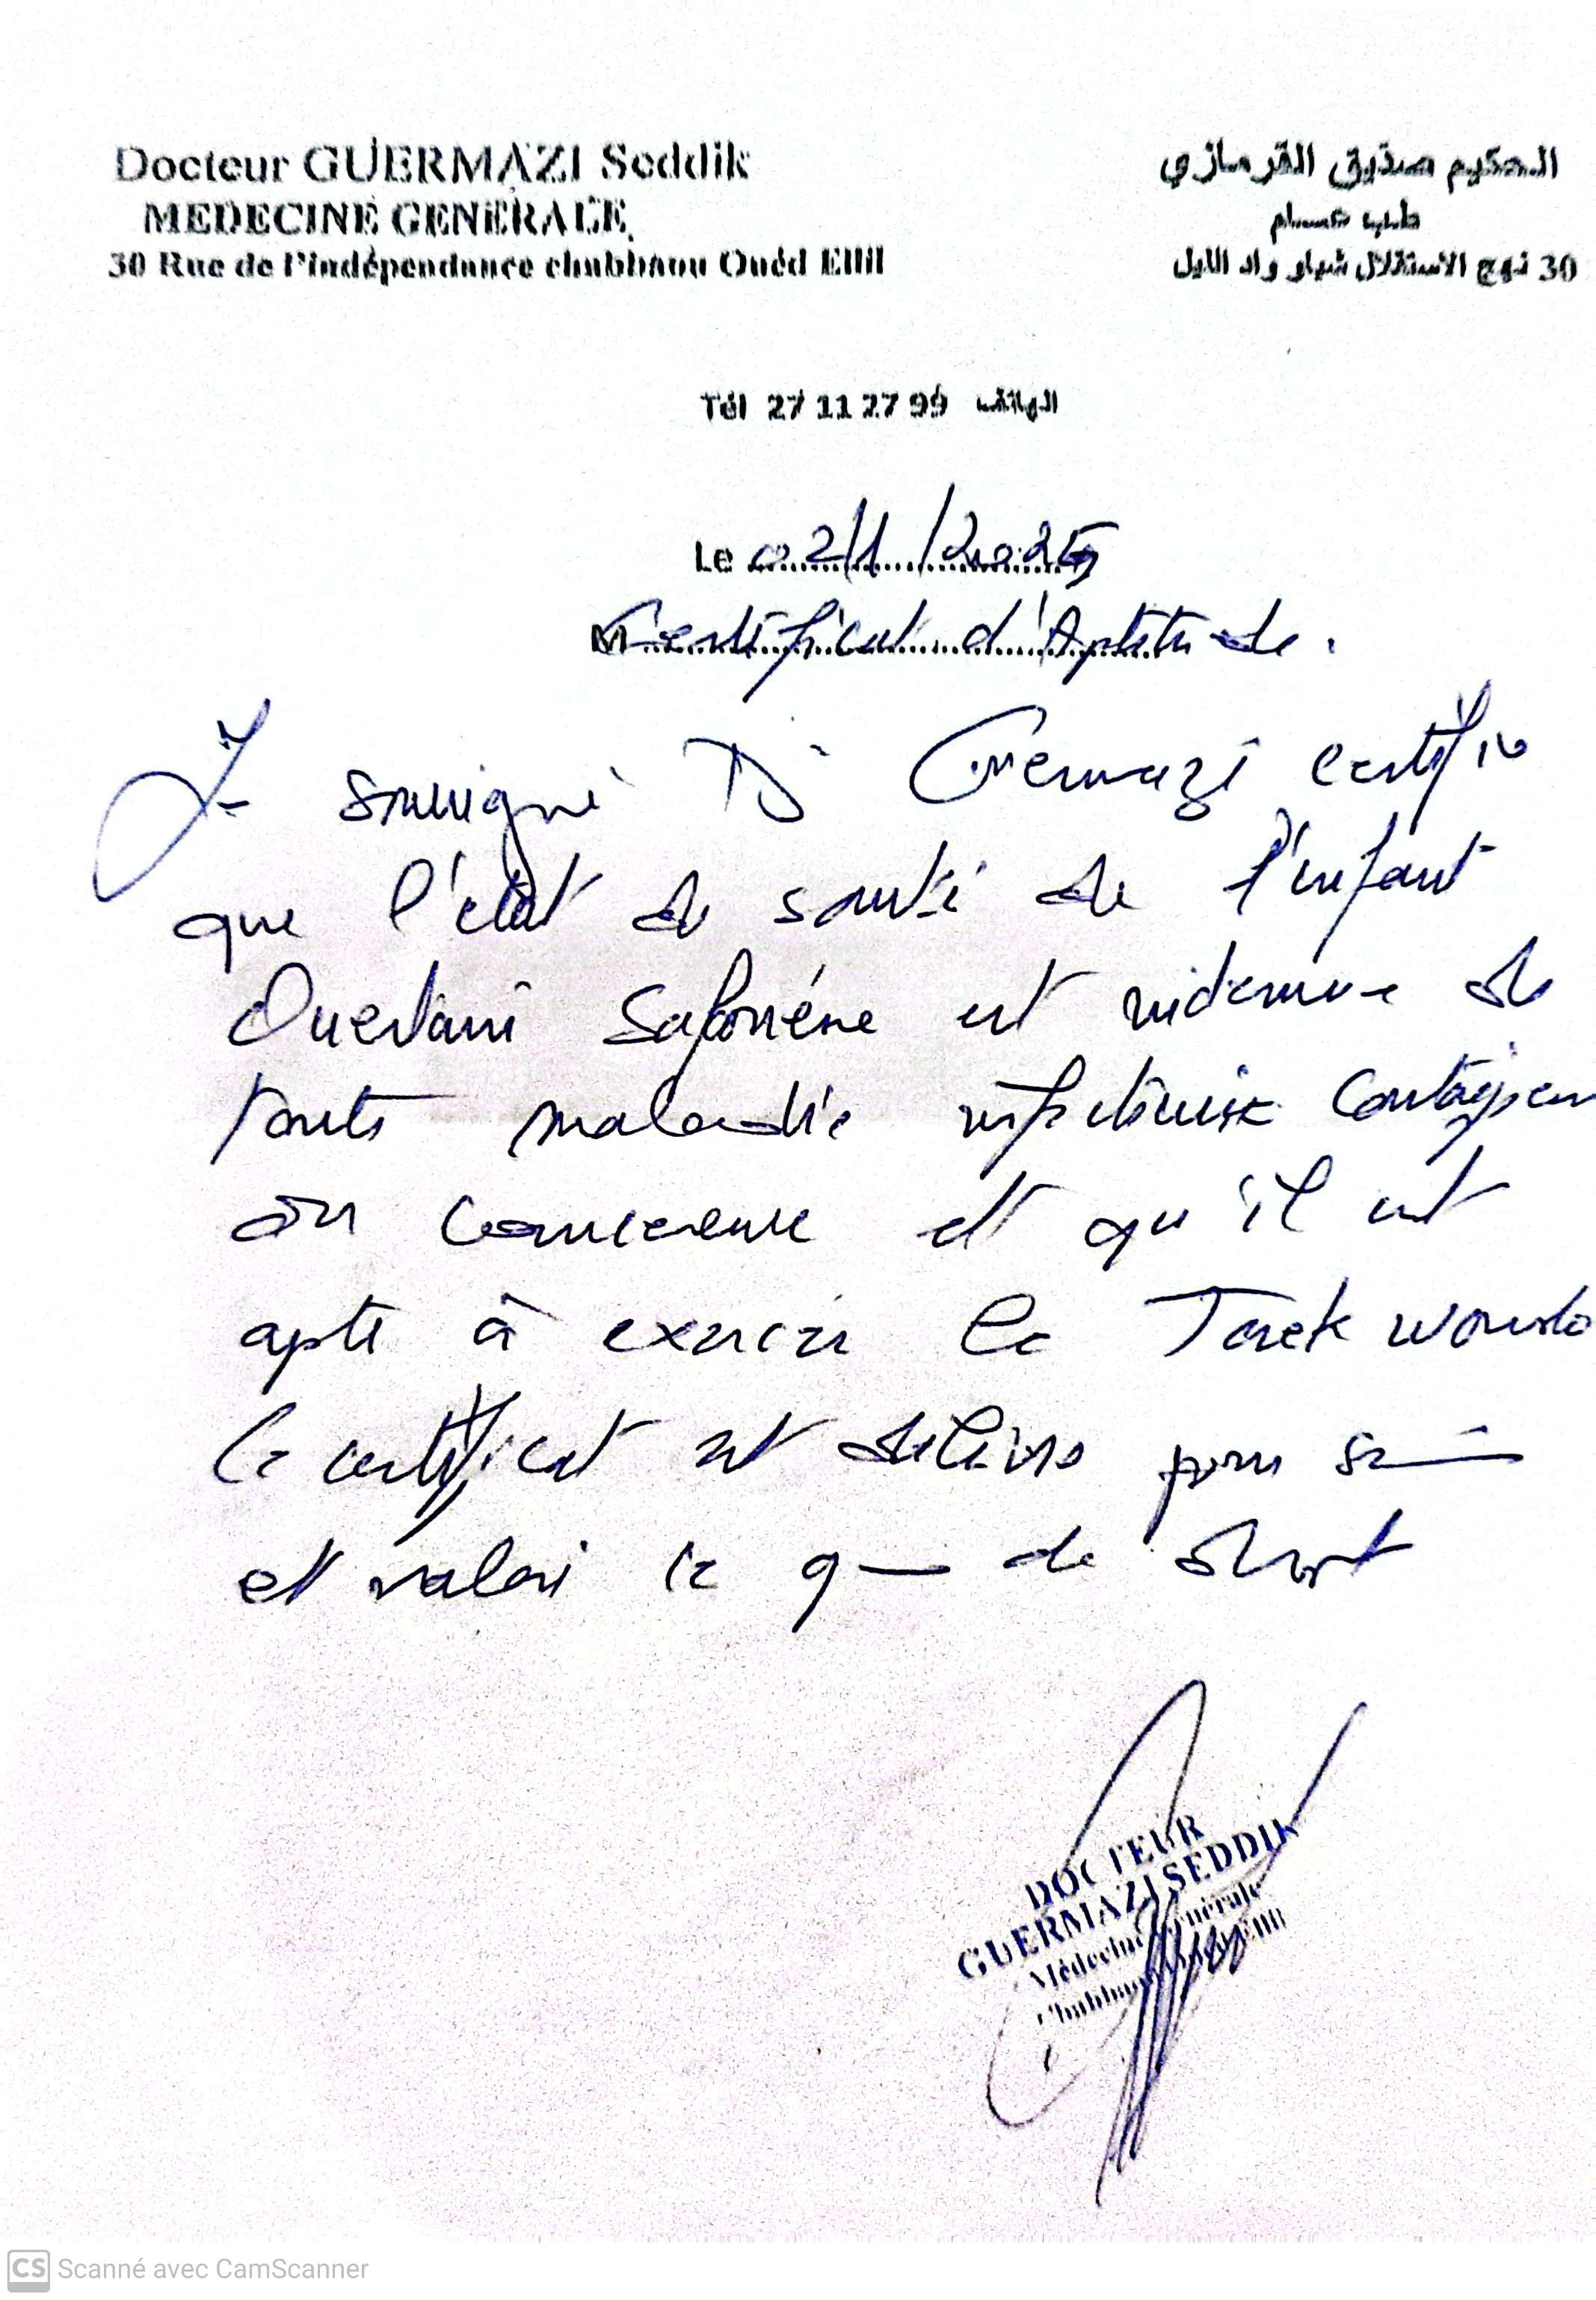 Docteur GUERMAZI Seddik
الحكيم صديق القرمازي
MEDECINE GENERALE
طب عام
30 Rue de l'indépendance chabbaou Ouéd Ellil
30 نهج الاستقلال شباو واد الليل
Tél 27 11 27 99 الهاتف
Le 02/1/2025
M Certificat d'Aptitude.
Je soussigné Dr Guermazi certifie
que l'état de santé de l'enfant
Ouertani Safouène est indemne de
toute maladie infectieuse contagieuse
ou cancereuse et qu'il est
apte à exercer le Taek wondo
Ce certificat est délivré pour servir
et valoir ce que de droit
DOCTEUR
GUERMAZI SEDDIK
Médecine Générale
Chabbaou Ellil
CS Scanné avec CamScanner